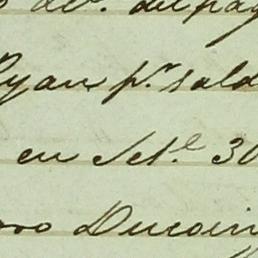 de. del pag
Ryan pr. sald
en Set.e 30
oso Ducoin